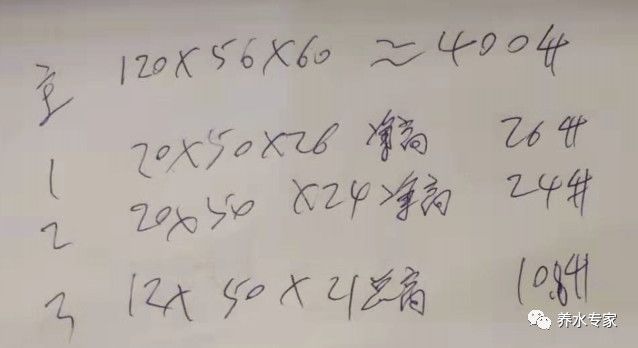 主 120X56X60 ≈400升
1 20X50X26 净高 26升
2 20X50 X24净高 24升
3 12X 50 X 21总高 10.8升
养水专家